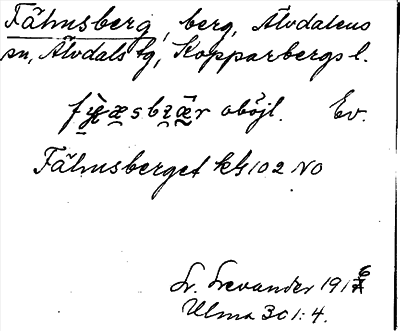 Fähusberg, berg, Älvdalens
sn, Älvdals tg, Kopparbergs l.
oböjl. Ev.
Fähusberget kbl 102 NO
L. Levander 1916
Ulma 301:4.